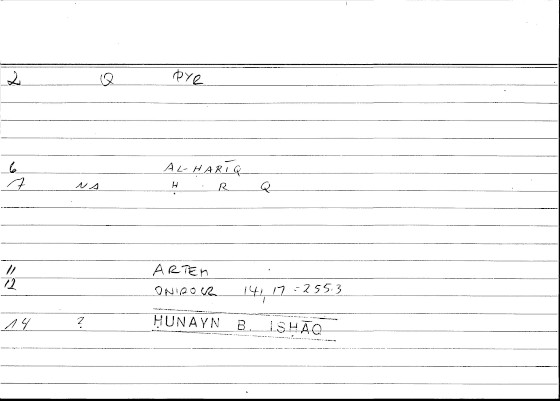 2 Q ΠYR
6 AL-ḤARĪQ
7 NA Ḥ R Q
11 ARTEM
12 ONIROCR 141,17 = 255.3
14 ? ḤUNAYN B. ISḤĀQ